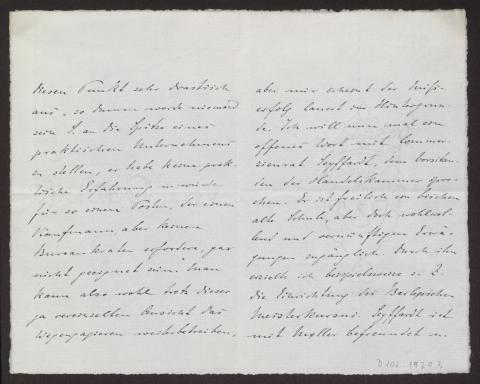 diesen Punkt sehr drastisch
aus, so dumm werde niemand
sein J. an die Spitze eines
praktischen Unternehmens
zu stellen, er habe keine prak-
tische Erfahrung u. würde
für so einen Posten, der einen
Kaufmann, aber keinen
Bureaukraten erfordere, gar
nicht geeignet sein. Man
kann also wohl trotz dieser
ja vereinzelten Ansicht das
weiterbetreiben,
aber mir scheint der Miß-
erfolg lauert im Hintergrun-
de. Ich will nun mal ein
offenes Wort mit Commer-
zienrat Seyffardt, dem Vorsitzen-
den der Handelskammer spre-
chen. Er ist freilich ein bischen
alte Schule, aber doch wohlwol-
lend und vernünftigen Erwä-
gungen zugänglich. Durch ihn
erzielte ich beispielsweise s. Z.
die Einrichtung der
Meisterkurse. Seyffardt ist
mit Möller befreundet u.
D 102. 1929 3